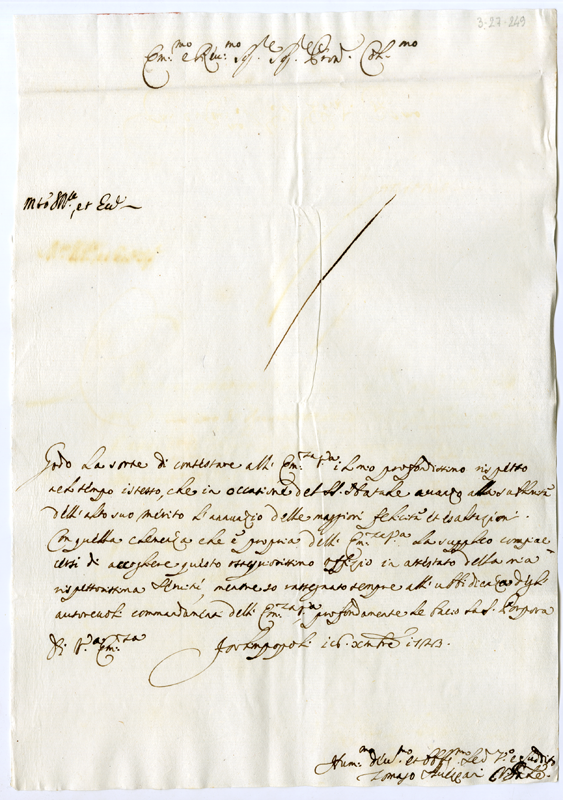 3-27-249
Em.mo e Reu.mo Sig.e Sig.e Pron. Col.mo
Godo la sorte di contestare all' Em.za V.ra il mio profondissimo rispetto
nel tempo istesso, che in occasione del SS. Natale auanzo alla sublimità
dell' alto suo merito l'annunzio delle maggiori felicità et esaltazioni.
Con quella clemenza che è propria dell' Em.za V.ra la supplico compia-
cersi di accogliere questo ossequiosissimo offizio in attestato della mia
rispettosissima seruitù, mentre so rassegnato sempre all' ubbidienza degli
autoreuoli commandamenti dell' Em.za V.ra profondamente le bacio la S. Porpora
Di V.ra Em.za Forlimpopoli i 16. xmbre 1723.
Hum.mo et Obb.mo
Tomaso